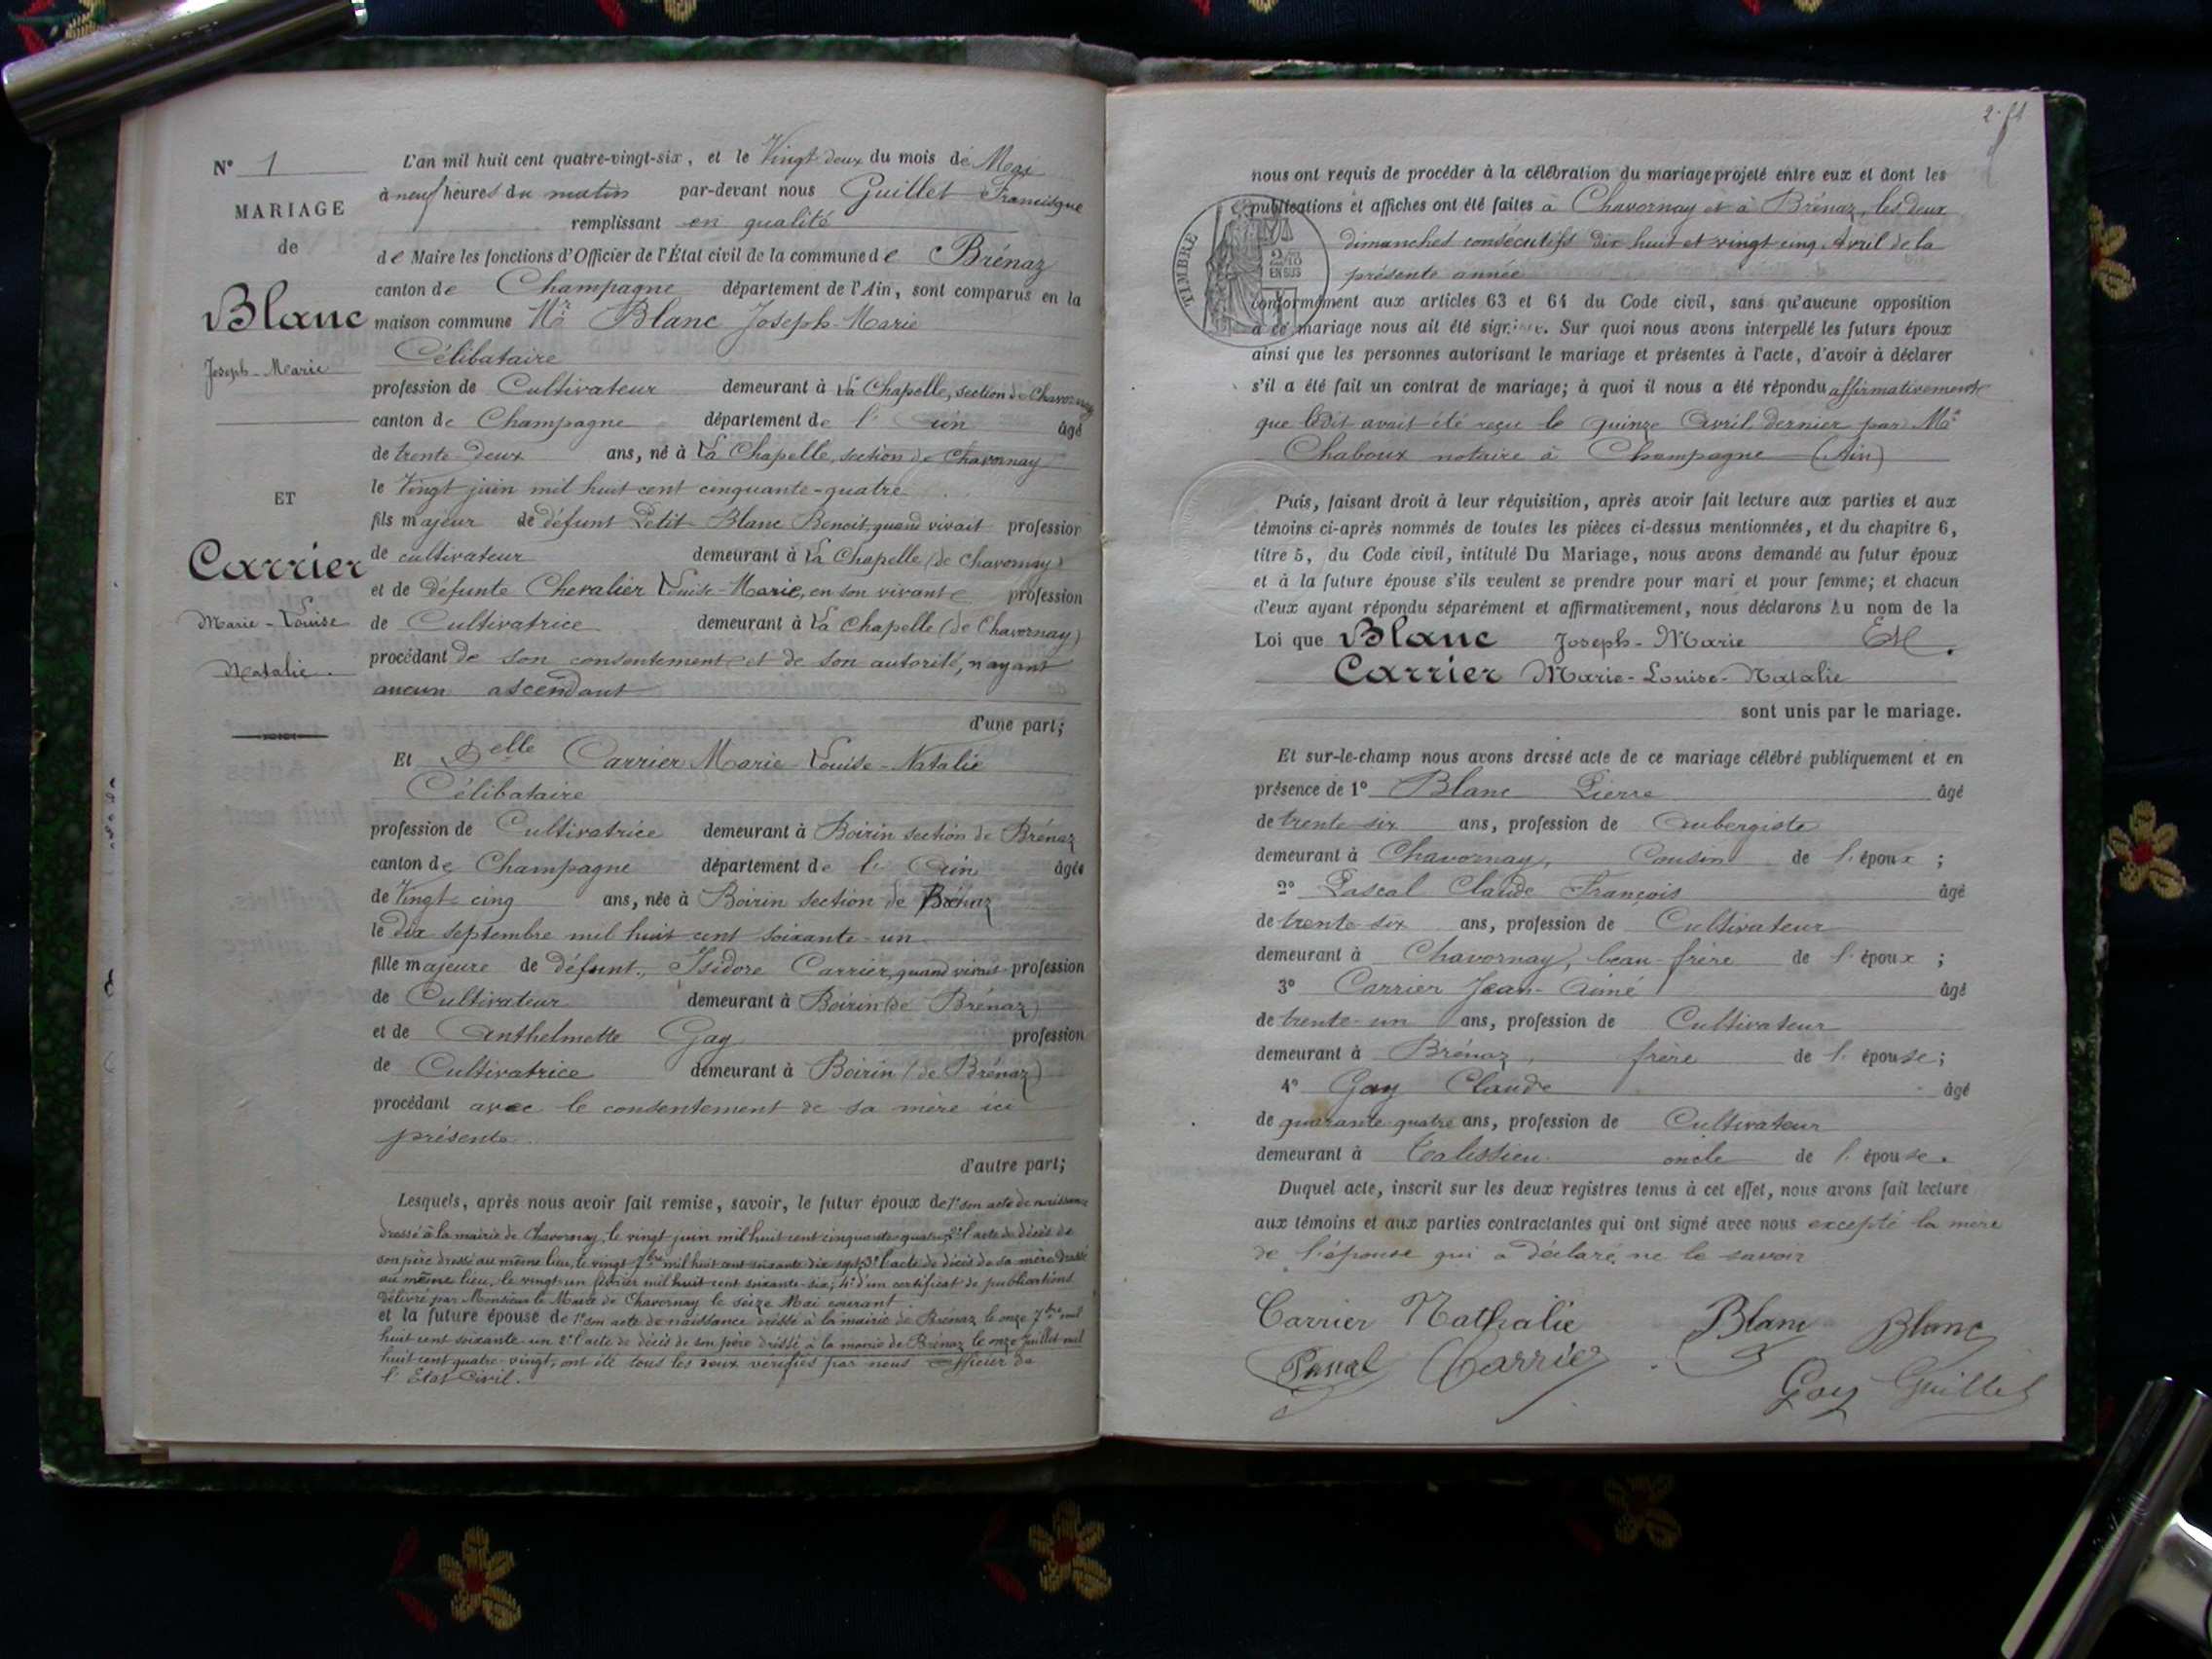 N° 1
MARIAGE
de
Blanc
Joseph-Marie
ET
Carrier
Marie-Louise
Natalie.
L'an mil huit cent quatre-vingt-six, et le Vingt-deux du mois de Mai
à neuf heures du matin par-devant nous Guillet Francisque
remplissant en qualité
de Maire les fonctions d'Officier de l'État civil de la commune de Brénaz
canton de Champagne département de l'Ain, sont comparus en la
maison commune Mr Blanc Joseph-Marie
Célibataire
profession de Cultivateur demeurant à La Chapelle, section de Chavornay
canton de Champagne département de l' Ain âgé
de trente-deux ans, né à La Chapelle, section de Chavornay
le Vingt juin mil huit cent cinquante-quatre
fils majeur de défunt Petit-Blanc Benoit, quand vivait profession
de cultivateur demeurant à La Chapelle (de Chavornay)
et de défunte Chevalier Louise-Marie, en son vivante profession
de Cultivatrice demeurant à La Chapelle (de Chavornay)
procédant de son consentement et de son autorité, n'ayant
aucun ascendant
d'une part;
Et Delle Carrier Marie-Louise-Natalie
Célibataire
profession de Cultivatrice demeurant à Boirin section de Brénaz
canton de Champagne département de l' Ain âgée
de Vingt-cinq ans, née à Boirin section de Brénaz
le dix septembre mil huit cent soixante-un
fille majeure de défunt, Isidore Carrier, quand vivait profession
de Cultivateur demeurant à Boirin (de Brénaz)
et de Anthelmette Gay profession
de Cultivatrice demeurant à Boirin (de Brénaz)
procédant avec le consentement de sa mère ici
présente
d'autre part;
Lesquels, après nous avoir fait remise, savoir, le futur époux de 1° son acte de naissance
dressé à la mairie de Chavornay, le vingt juin mil huit cent cinquante-quatre, 2° l'acte de décès de
son père dressé au même lieu, le vingt 7bre mil huit cent soixante dix sept; 3° l'acte de décès de sa mère dressé
au même lieu, le vingt-un février mil huit cent soixante-six; 4° d'un certificat de publications
délivré par Monsieur le Maire de Chavornay le seize Mai courant
et la future épouse de 1° son acte de naissance dressé à la mairie de Brénaz le onze 7bre mil
huit cent soixante-un 2° l'acte de décès de son père dressé à la mairie de Brénaz le onze juillet mil
huit cent quatre-vingt; ont été tous les deux vérifiés par nous officier de
l'État-Civil.
nous ont requis de procéder à la célébration du mariage projeté entre eux et dont les
publications et affiches ont été faites à Chavornay et à Brénaz, les deux
dimanches consécutifs dix huit et vingt cinq Avril de la
présente année
conformément aux articles 63 et 64 du Code civil, sans qu'aucune opposition
à ce mariage nous ait été signifiée. Sur quoi nous avons interpellé les futurs époux
ainsi que les personnes autorisant le mariage et présentes à l'acte, d'avoir à déclarer
s'il a été fait un contrat de mariage; à quoi il nous a été répondu affirmativement
que ledit avait été reçu le quinze Avril dernier par Me
Chaboux notaire à Champagne (Ain)
TIMBRE
EN SUS
Puis, faisant droit à leur réquisition, après avoir fait lecture aux parties et aux
témoins ci-après nommés de toutes les pièces ci-dessus mentionnées, et du chapitre 6,
titre 5, du Code civil, intitulé Du Mariage, nous avons demandé au futur époux
et à la future épouse s'ils veulent se prendre pour mari et pour femme; et chacun
d'eux ayant répondu séparément et affirmativement, nous déclarons Au nom de la
Loi que Blanc Joseph-Marie Et
Carrier Marie-Louise-Natalie
sont unis par le mariage.
Et sur-le-champ nous avons dressé acte de ce mariage célébré publiquement et en
présence de 1° Blanc Pierre âgé
de trente-six ans, profession de Aubergiste
demeurant à Chavornay, Cousin de l'époux ;
2° Pascal Claude François âgé
de trente-six ans, profession de Cultivateur
demeurant à Chavornay, beau-frère de l'époux ;
3° Carrier Jean-Aimé âgé
de trente-un ans, profession de Cultivateur
demeurant à Brénaz, frère de l'épouse;
4° Gay Claude âgé
de quarante-quatre ans, profession de Cultivateur
demeurant à Talissieu oncle de l'épouse.
Duquel acte, inscrit sur les deux registres tenus à cet effet, nous avons fait lecture
aux témoins et aux parties contractantes qui ont signé avec nous excepté la mère
de l'épouse qui a déclaré ne le savoir
Carrier Nathalie Blanc Blanc
Pascal Carrier Gay Guillet